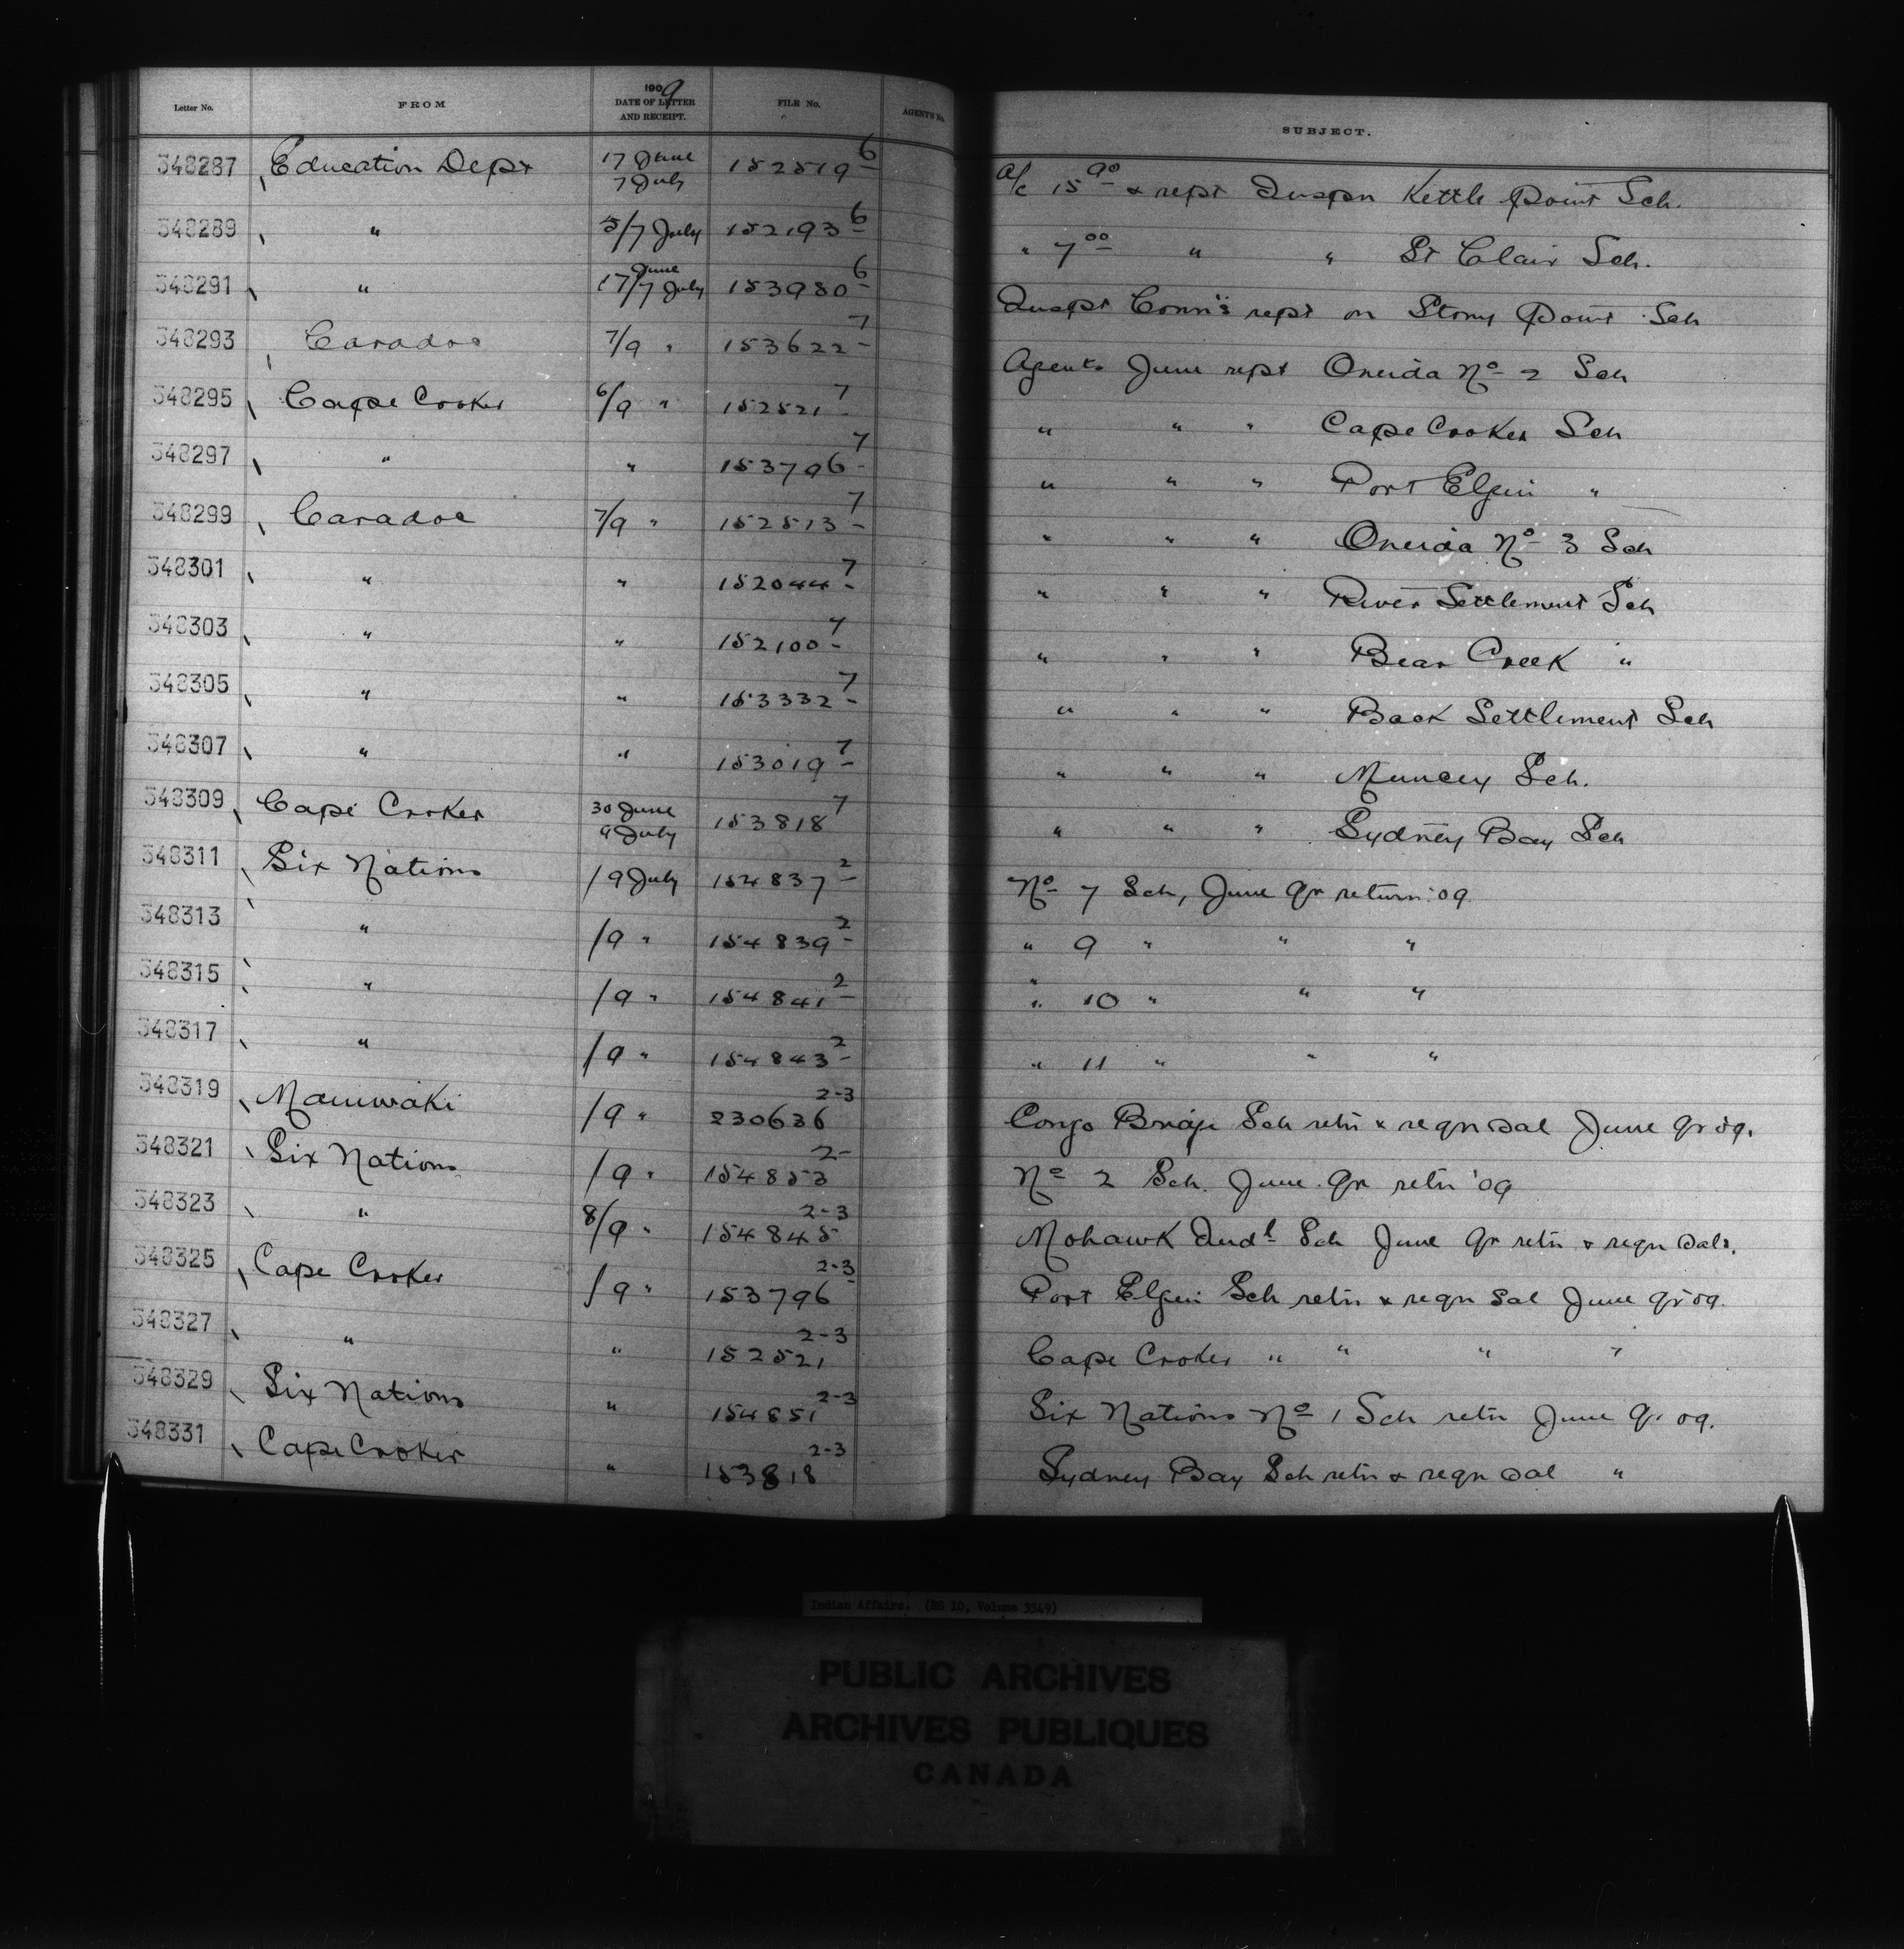 Letter No. FROM 1909 DATE OF LETTER AND RECEIPT. FILE No. AGENT'S No. SUBJECT.
348287 Education Dept 17 June 7 July 152519-6 a/c 15 90 & rept Inspn Kettle Point Sch.
348289 " 5/7 July 152193-6 " 7 00 " " St Clair Sch.
348291 " 17 June/7 July 153980-6 Inspt Conn's rept on Stony Point Sch
348293 Caradoc 7/9 " 153622-7 Agents June rept Oneida No 2 Sch
348295 Cape Croker 6/9 " 152521-7 " " " Cape Croker Sch
348297 " " 153796-7 " " " Port Elgin "
348299 Caradoc 7/9 " 152513-7 " " " Oneida No 3 Sch
348301 " " 152044-7 " " " River Settlement Sch
348303 " " 152100-7 " " " Bear Creek "
348305 " " 153332-7 " " " Back Settlement Sch
348307 " " 153019-7 " " " Muncey Sch.
348309 Cape Croker 30 June 9 July 153818 7 " " " Sydney Bay Sch
348311 Six Nations /9 July 154837-2 No 7 Sch, June qr return '09
348313 " /9 " 154839-2 " 9 " " "
348315 " /9 " 154841-2 " 10 " " "
348317 " /9 " 154843-2 " 11 " " "
348319 Maniwaki /9 " 230636 2-3 Congo Bridge Sch retn & reqn Sal June qr '09.
348321 Six Nations /9 " 154853 2- No 2 Sch. June qr retn '09
348323 " 8/9 " 154845 2-3 Mohawk Indl Sch June qr retn & reqn Sals.
348325 Cape Croker /9 " 153796 2-3 Port Elgin Sch retn & reqn Sal June qr '09.
348327 " " 152521 2-3 Cape Croker " " " "
348329 Six Nations " 154851 2-3 Six Nations No 1 Sch retn June qr 09.
348331 Cape Croker " 153818 2-3 Sydney Bay Sch retn & reqn Sal "
Indian Affairs. (RG 10, Volume 3349)
PUBLIC ARCHIVES
ARCHIVES PUBLIQUES
CANADA